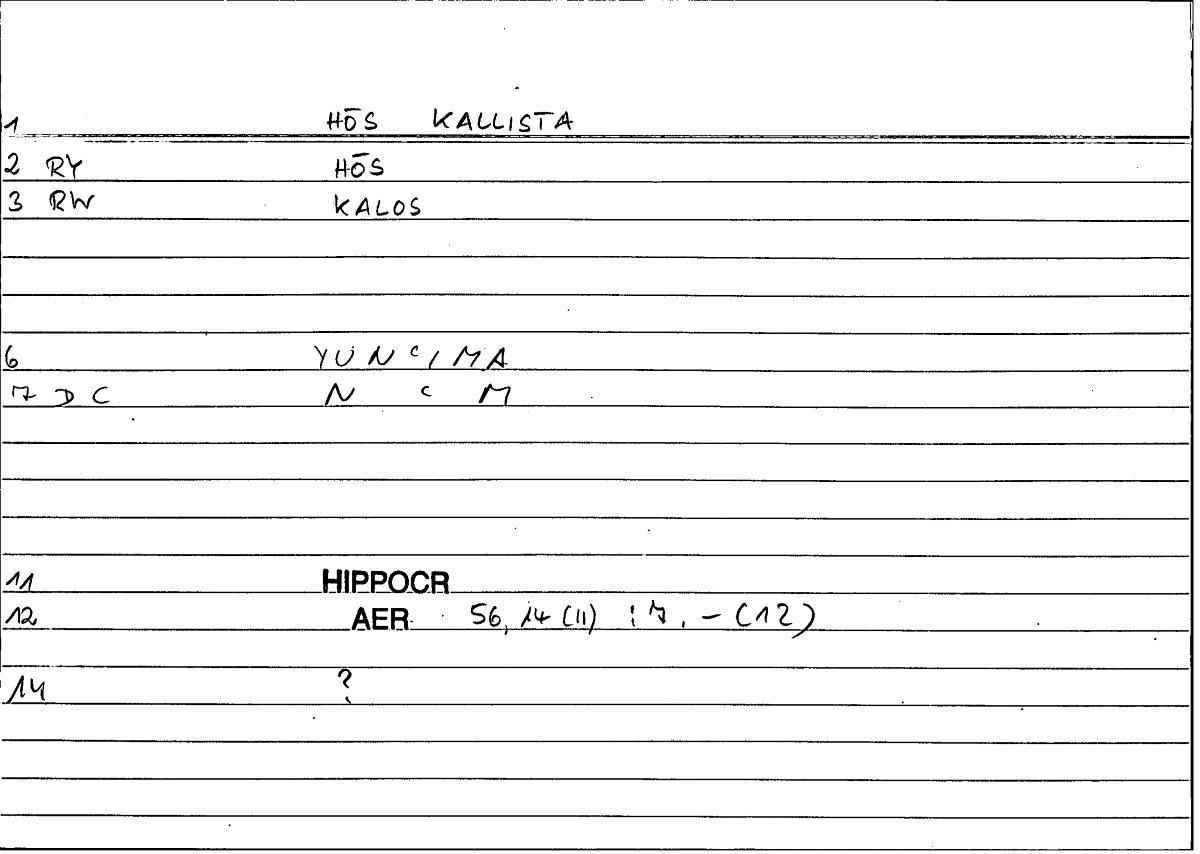 1 HŌS KALLISTA
2 RY HŌS
3 RW KALOS
6 YUNᶜIMA
7 DC N ᶜ M
11 HIPPOCR
12 AER 56, 14 (11) : 7. - (12)
14 ?